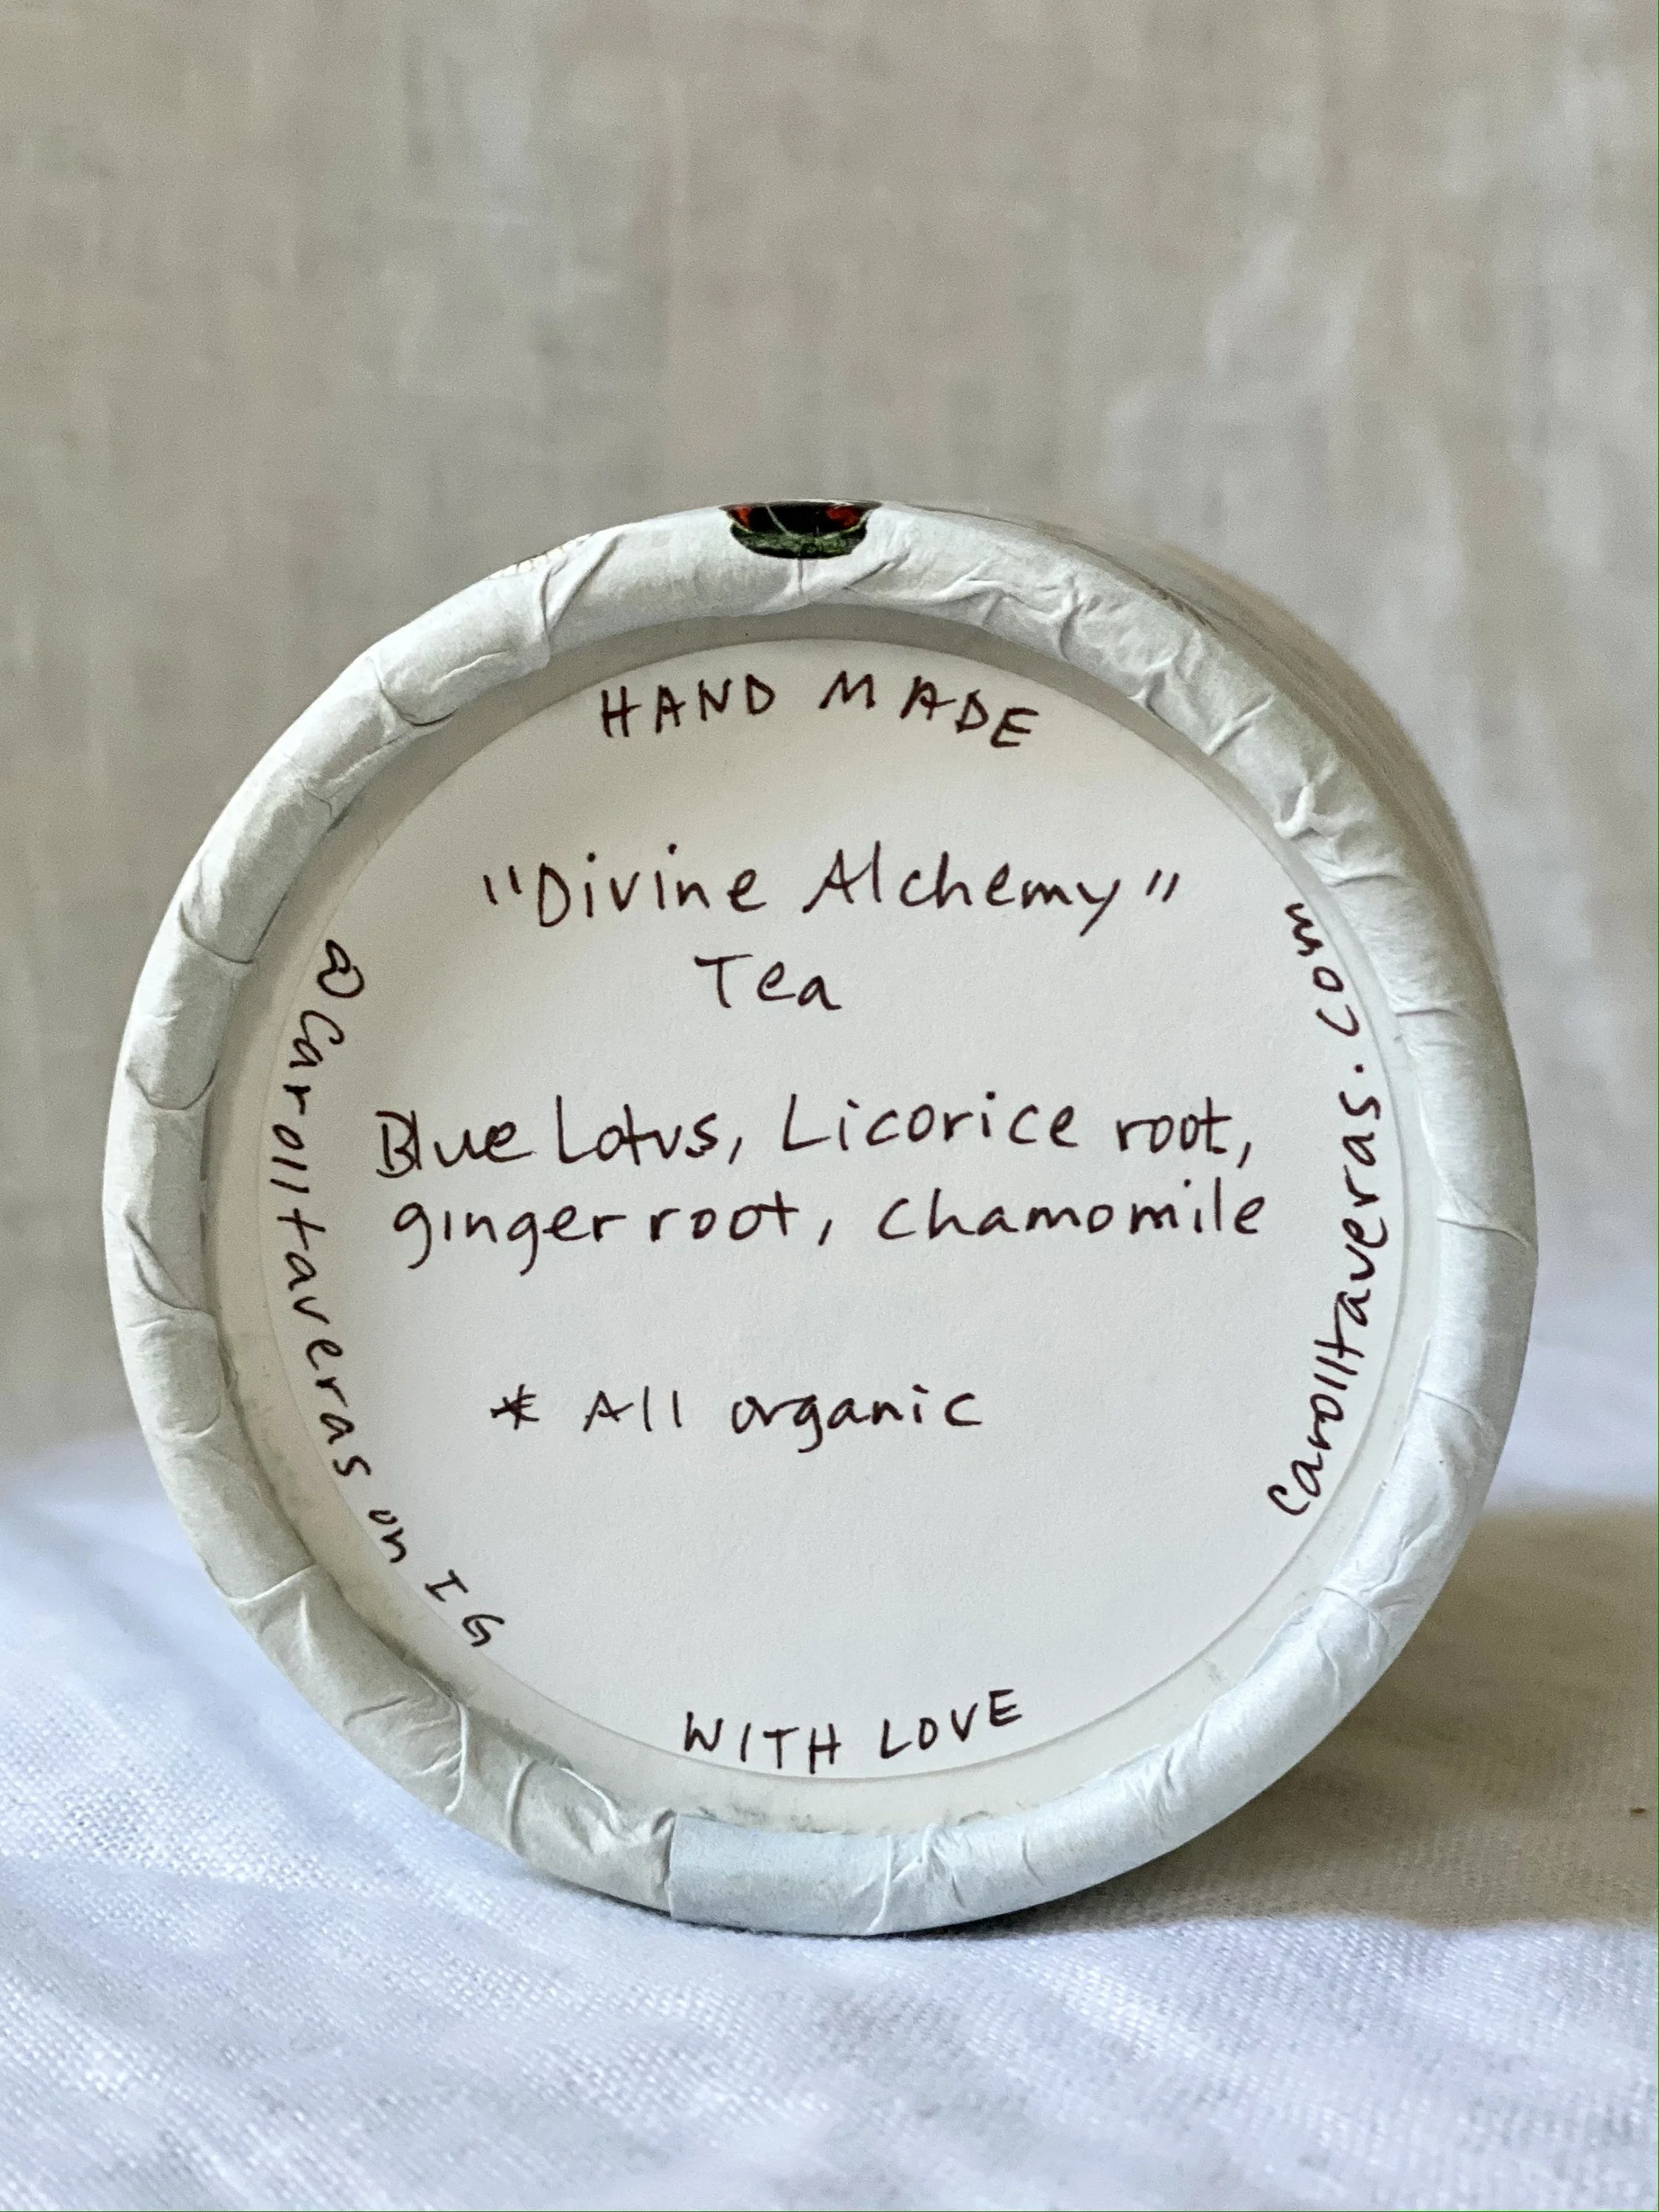 HAND MADE
"Divine Alchemy"
Tea
Blue Lotus, Licorice root,
ginger root, chamomile
* All organic
@Carolltaveras on IG
Carolltaveras.com
WITH LOVE